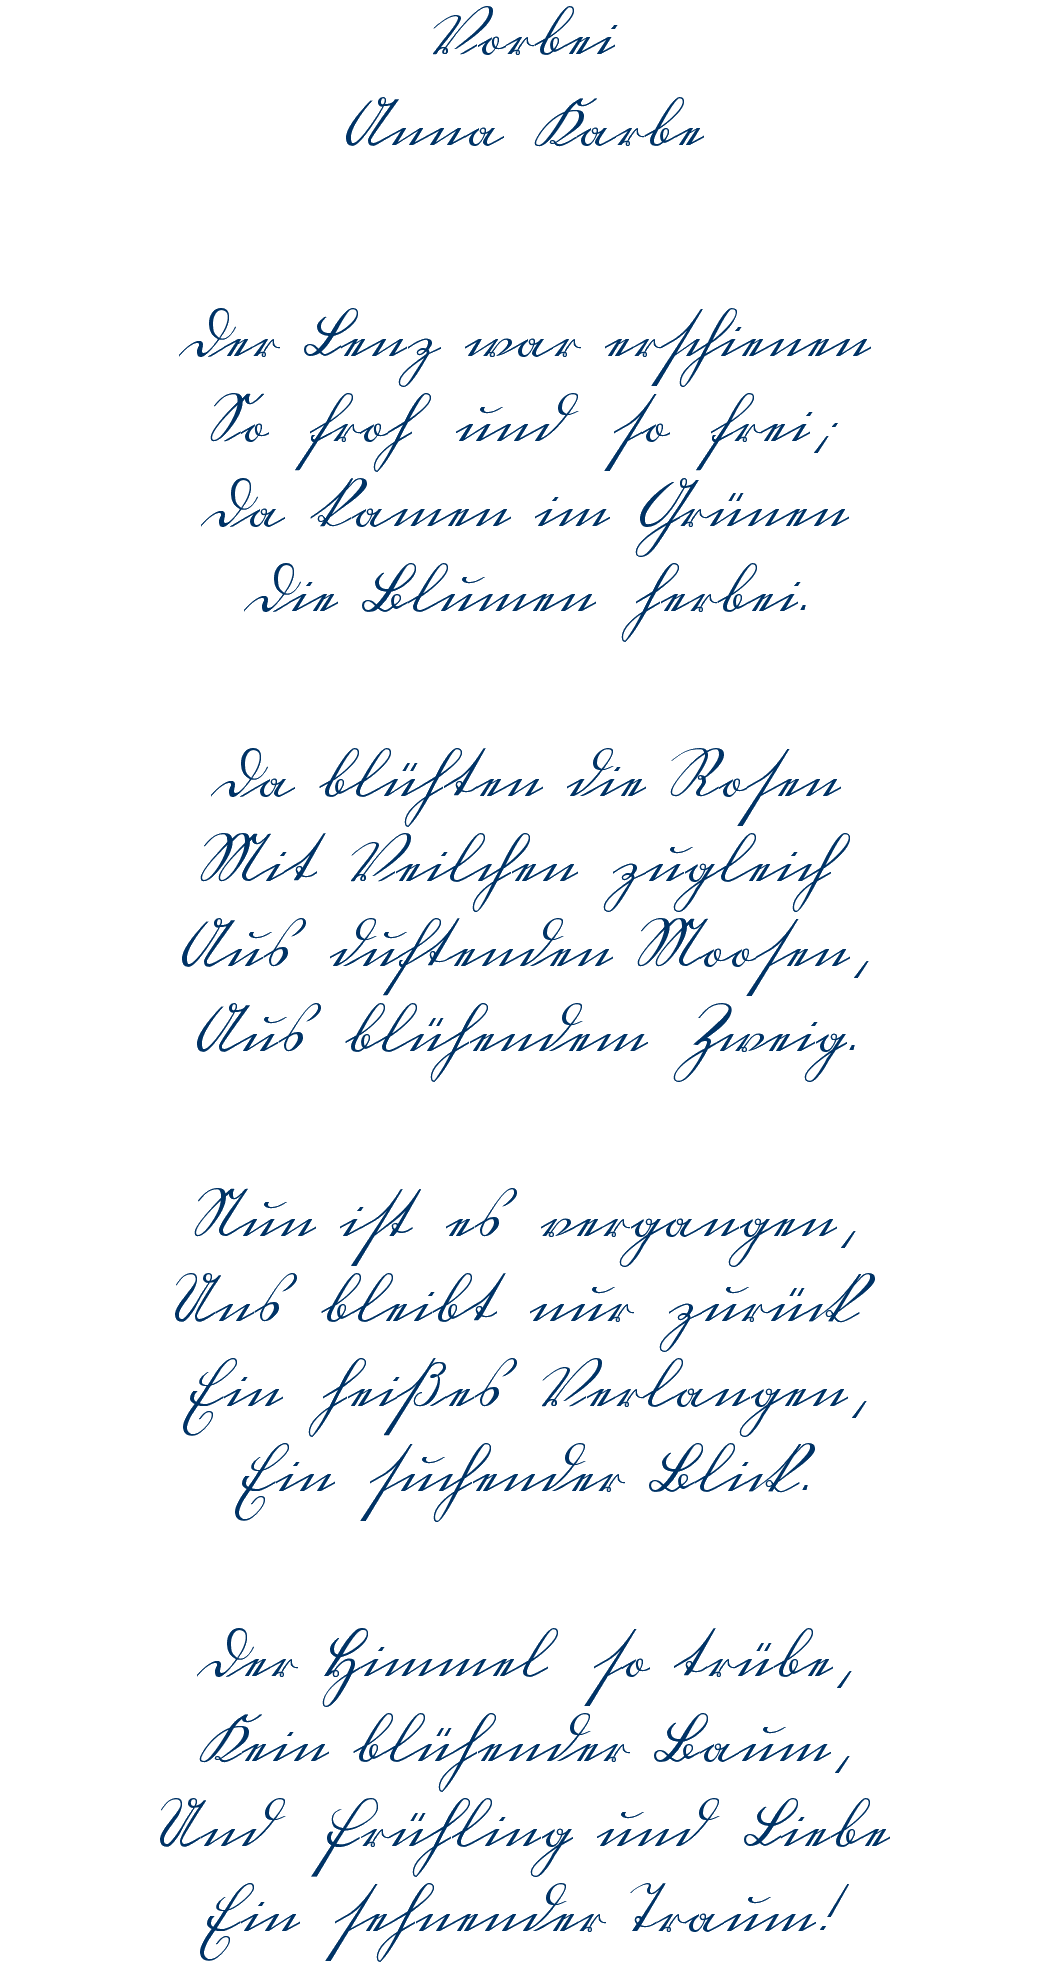 Vorbei
Anna Karbe
Der Lenz war erschienen
So froh und so frei;
Da kamen im Grünen
Die Blumen herbei.
Da blühten die Rosen
Mit Veilchen zugleich
Aus duftenden Moosen,
Aus blühendem Zweig.
Nun ist es vergangen,
Uns bleibt nur zurück
Ein heißes Verlangen,
Ein suchender Blick.
Der Himmel so trübe,
Kein blühender Baum,
Und Frühling und Liebe
Ein sehnender Traum!